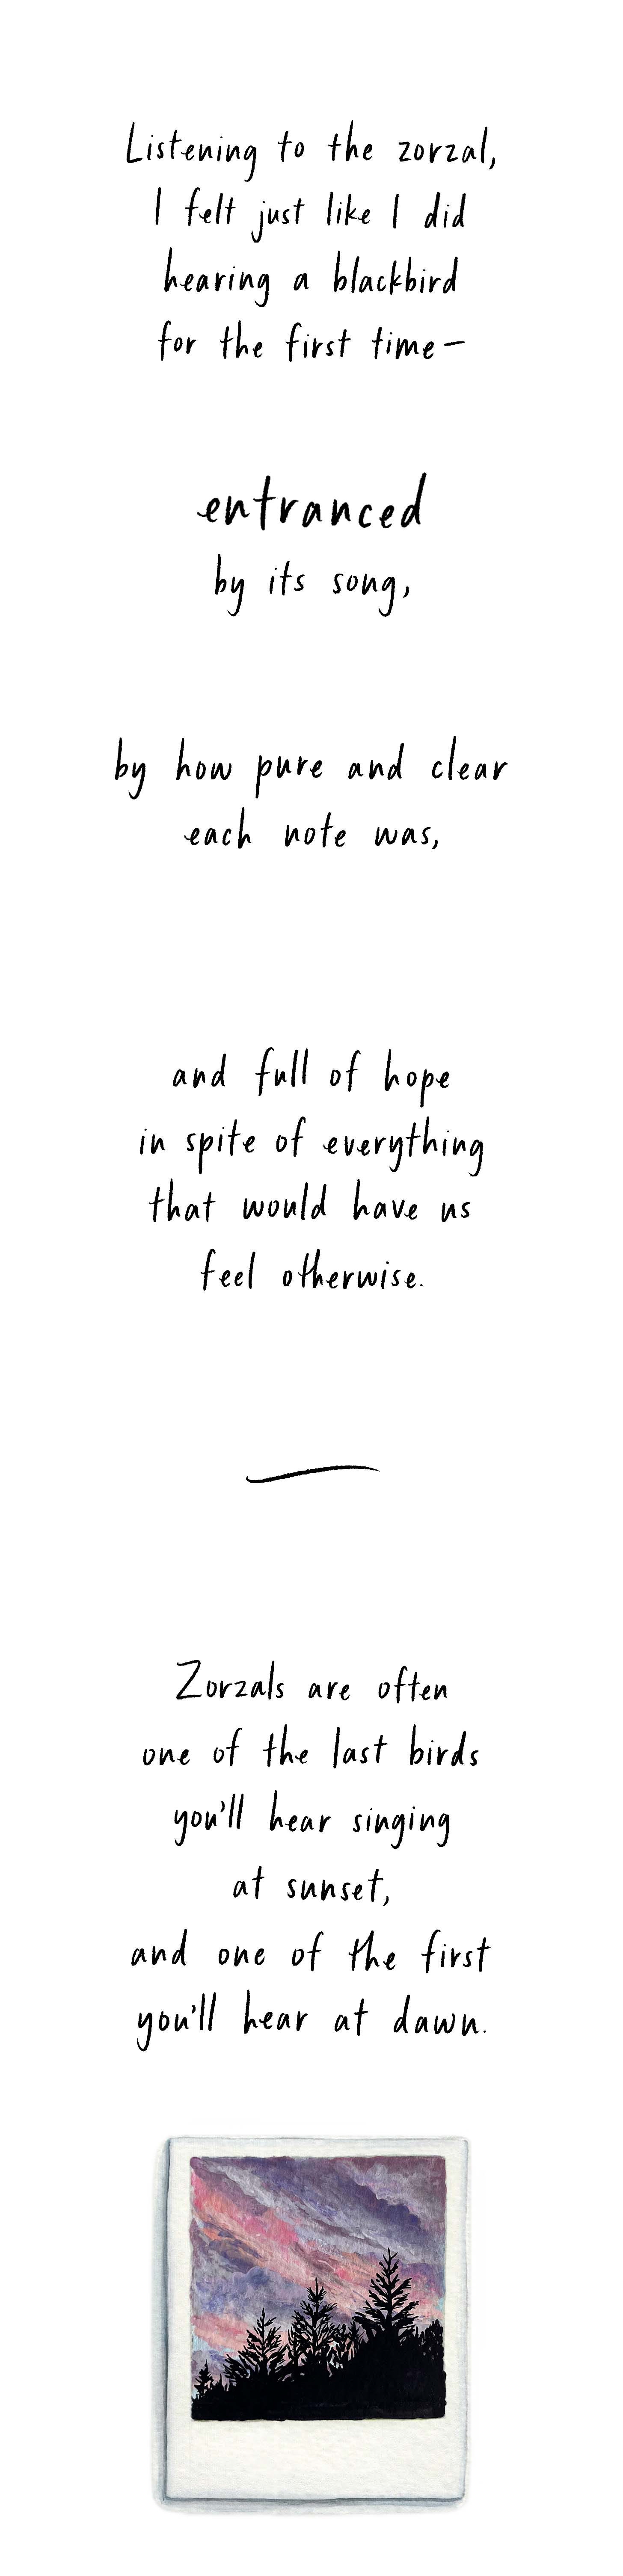 Listening to the zorzal,
I felt just like I did
hearing a blackbird
for the first time—
entranced
by its song,
by how pure and clear
each note was,
and full of hope
in spite of everything
that would have us
feel otherwise.
Zorzals are often
one of the last birds
you'll hear singing
at sunset,
and one of the first
you'll hear at dawn.